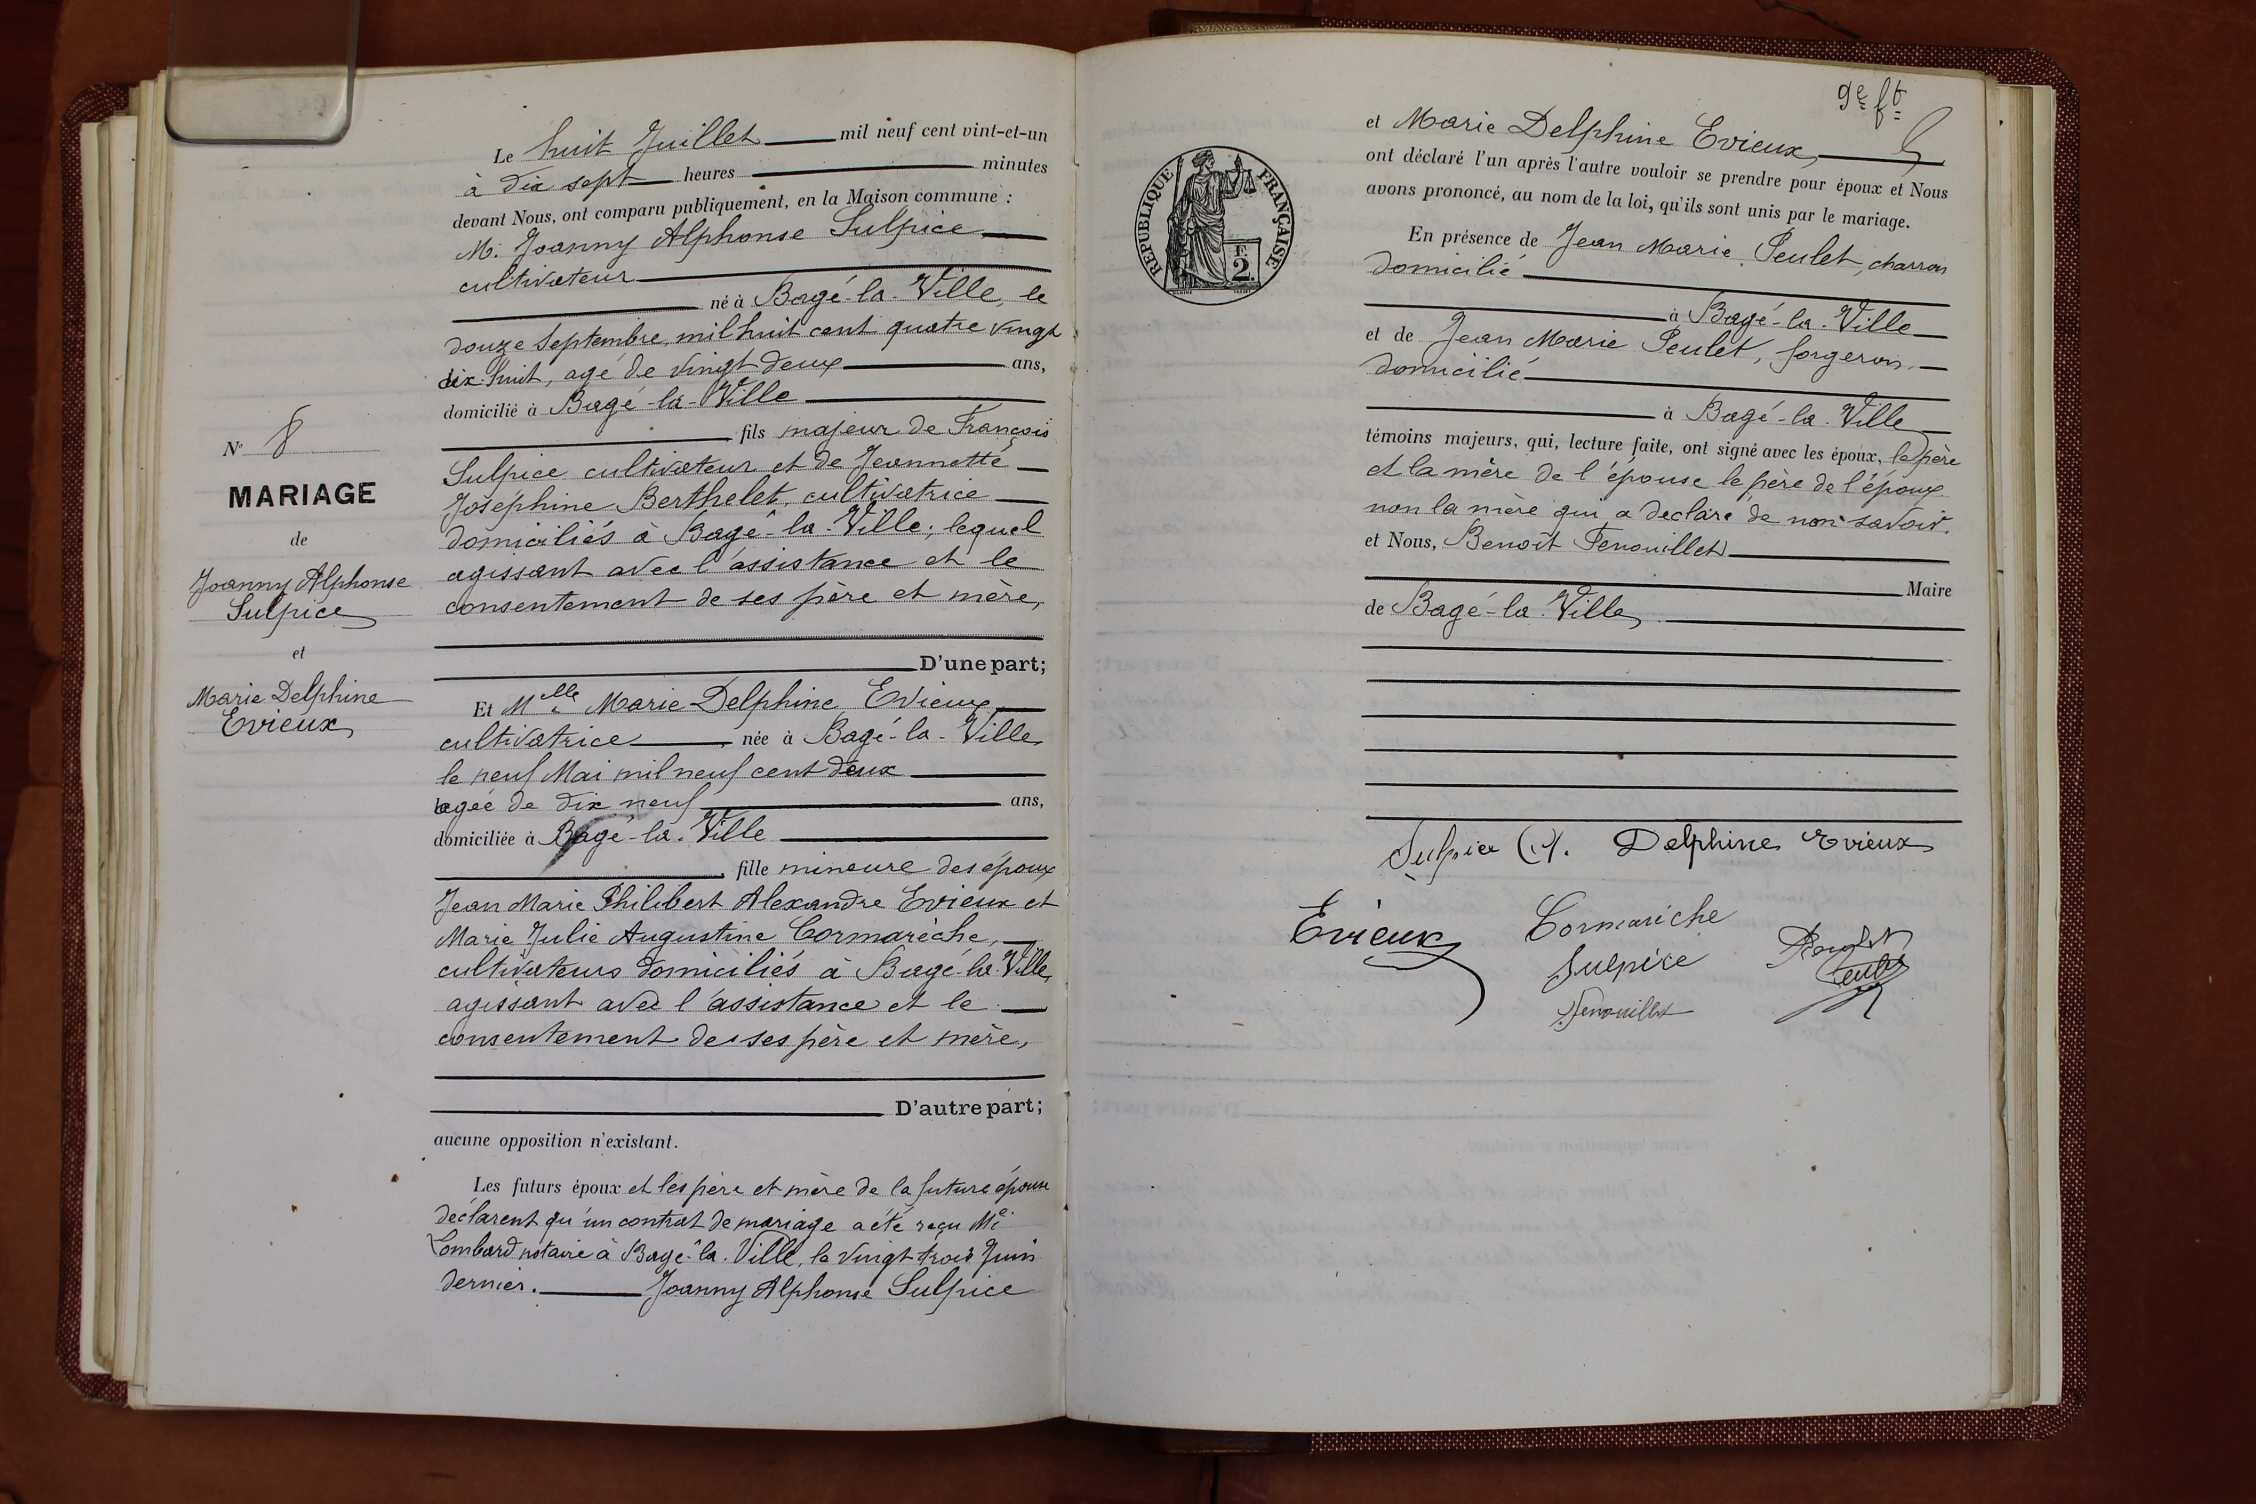 Le huit Juillet mil neuf cent vint-et-un
à dix sept heures minutes
devant Nous, ont comparu publiquement, en la Maison commune :
M. Joanny Alphonse Sulpice
cultivateur
né à Bagé-la-Ville, le
douze Septembre, mil huit cent quatre vingt
dix-huit, agé de vingt deux ans,
domicilié à Bagé-la-Ville
fils majeur de François
Sulpice cultivateur et de Jeannette
Joséphine Berthelet, cultivatrice
domiciliés à Bagé-la-Ville; lequel
agissant avec l'assistance et le
consentement de ses père et mère,
D'une part;
Et Melle Marie Delphine Evieux
cultivatrice née à Bagé-la-Ville
le neuf Mai mil neuf cent deux
agée de dix neuf ans,
domiciliée à Bagé-la-Ville
fille mineure des époux
Jean Marie Philibert Alexandre Evieux et
Marie Julie Augustine Cormarèche,
cultivateurs domiciliés à Bagé-la-Ville,
agissant avec l'assistance et le
consentement de ses père et mère,
D'autre part;
aucune opposition n'existant.
Les futurs époux et les père et mère de la future épouse
déclarent qu'un contrat de mariage a été reçu Me
Lombard notaire à Bagé-la-Ville, le vingt trois Juin
dernier. Joanny Alphonse Sulpice
No 8
MARIAGE
de
Joanny Alphonse
Sulpice
et
Marie Delphine
Evieux
9e ft
REPUBLIQUE FRANÇAISE
F.
2
et Marie Delphine Evieux
ont déclaré l'un après l'autre vouloir se prendre pour époux et Nous
avons prononcé, au nom de la loi, qu'ils sont unis par le mariage.
En présence de Jean Marie Peulet, charron
domicilié
à Bagé-la-Ville
et de Jean Marie Peulet, forgeron
domicilié
à Bagé-la-Ville
témoins majeurs, qui, lecture faite, ont signé avec les époux, le père
et la mère de l'épouse le père de l'époux
non la mère qui a déclaré de non savoir.
et Nous, Benoît Fenouillet
Maire
de Bagé-la-Ville
Sulpice Delphine Evieux
Evieux
Cormarèche
Sulpice
Peulet
Fenouillet